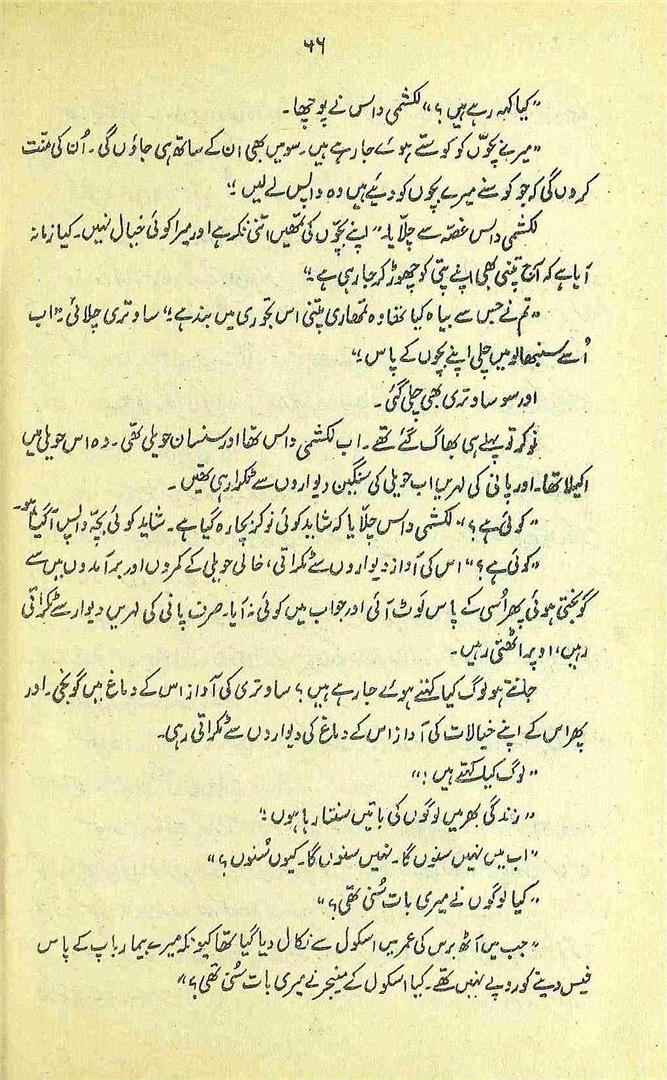 ۵۶
“کیا کہہ رہے ہیں؟” لکشمی داس نے پوچھا۔
“میرے بچّوں کو کوستے ہوئے جا رہے ہیں۔ سو میں بھی ان کے ساتھ ہی جاؤں گی۔ اُن کی منّت
کروں گی کہ جو کوسنے میرے بچوں کو دیئے ہیں وہ واپس لے لیں۔”
لکشمی داس غصّہ سے چلّایا۔ “اپنے بچّوں کی تمھیں اتنی فکر ہے اور میرا کوئی خیال نہیں۔ کیا زمانہ
آیا ہے کہ آج پتنی بھی اپنے پتی کو چھوڑ کر جا رہی ہے۔”
“تم نے جس سے بیاہ کیا تھا وہ تمھاری پتنی اس تجوری میں بند ہے۔” ساوتری چلائی۔ “اب
اُسے سنبھالو میں چلی اپنے بچوں کے پاس۔”
اور سو ساوتری بھی چلی گئی۔
نوکر تو پہلے ہی بھاگ گئے تھے۔ اب لکشمی داس تھا اور سنسان حویلی تھی۔ وہ اس حویلی میں
اکیلا تھا۔ اور پانی کی لہریں اب حویلی کی سنگین دیواروں سے ٹکرا رہی تھیں۔
“کوئی ہے؟” لکشمی داس چلّایا کہ شاید کوئی نوکر بچا رہ گیا ہے۔ شاید کوئی بچّہ واپس آ گیا ہو۔
“کوئی ہے؟” اس کی آواز دیواروں سے ٹکراتی، خالی حویلی کے کمروں اور برآمدوں میں سے
گونجتی ہوئی پھر اُسی کے پاس لَوٹ آئی اور جواب میں کوئی نہ آیا۔ صرف پانی کی لہریں دیوار سے ٹکراتی
رہیں، اوپر اٹھتی رہیں۔
جانتے ہو لوگ کیا کہتے ہوئے جا رہے ہیں؟ ساوتری کی آواز اس کے دماغ میں گونجی۔ اور
پھر اس کے اپنے خیالات کی آواز اس کے دماغ کی دیواروں سے ٹکراتی رہی۔
“لوگ کیا کہتے ہیں!”
“زندگی بھر میں لوگوں کی باتیں سنتا رہا ہوں۔”
“اب میں نہیں سنوں گا۔ نہیں سنوں گا۔ کیوں سُنوں؟”
“کیا لوگوں نے میری بات سُنی تھی؟”
“جب میں آٹھ برس کی عمر میں اسکول سے نکال دیا گیا تھا کیونکہ میرے بیمار باپ کے پاس
فیس دینے کو روپے نہیں تھے۔ کیا اسکول کے منیجر نے میری بات سُنی تھی؟”